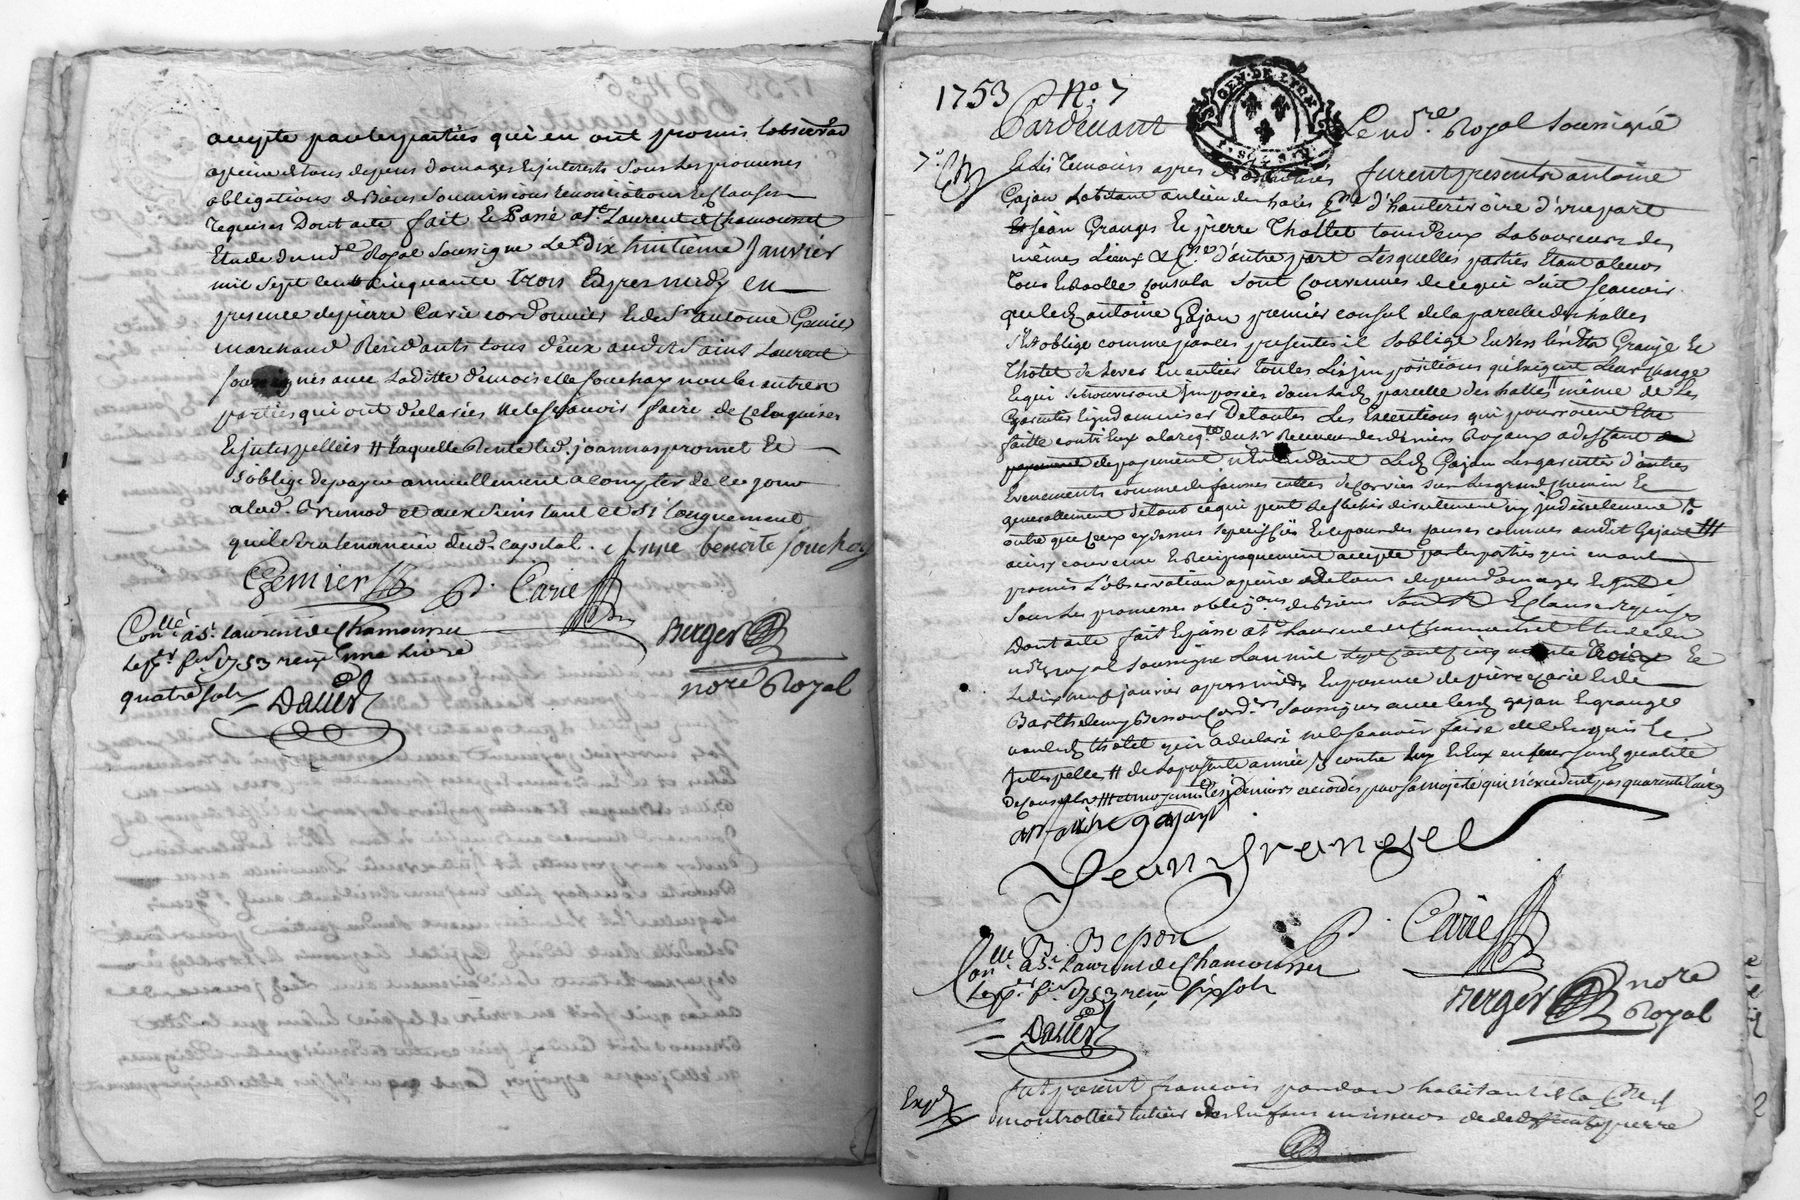 accepte par les parties qui en ont promis l'observaon
a peine de tous depens domages Et jnterests Sous Les promesses
obligations de Biens Soummissions renonciations Et Clauses
requises Dont acte fait Et Passé a St. Laurent de Chamousset
Etude du nore Royal Soussigne Le dix huitieme Janvier
mil Sept Cent Cinquante trois apres midy en
presence de pierre Carie cordonnier Et de Sr antoine Grenier
marchand Residants tous deux audit Saint Laurent
soussignés avec Laditte demoiselle fouchay non les autres
parties qui ont declarées ne le Scavoir faire de ce Enquises
Et jnterpellées # Laquelle Rente led. joannas promet Et
s'oblige de payer annuellement a compter de ce jour
aud. Brunod et aux siens tant et si longuement
qu'il sera tenancier dud. capital. Anne benoite fouchay
Grenier P. Carie
Conllé. à St. Laurent de Chamousset
Le 1753 reçu une Livre
quatre sols
Berger
nore Royal
Dallier
1753 No. 7
Pardevant Le nore. Royal soussigné
7e. Et Les Temoins apres Nommés furent presents antoine
Gajan habitant au lieu des hales psse d'hauterivoire d'une part
Et jean Granges Et pierre Thollet tous deux Laboureurs des
mêmes Lieux & psse d'autre part Lesquelles parties Etant
consuls Sont Convenues de ce qui Suit scavoir
que led. antoine Gajan premier consul de la parcelle des halles
s'est obligé comme par ces presentes il s'oblige Envers lesdits Grange Et
Thollet de Lever En entier toutes Les jmpositions qu'Exigent Leur charge
Et qui se trouveront jmposées dans lad. parcelle des halles même de Les
garentir Et jndamniser de toutes Les Executions qui pourroient Etre
faitte contr'Eux a la reqte. du sr Receveur des deniers Royaux a deffaut
de payement n'Entendant Led. Gajan Les garentir d'autres
Evenements comme de fausses cottes de corvées Sur Les grands chemins Et
generallement de tout ce qui peut
outre que Ceux cy dessus specifiés Et ce pour des causes connues audit Gajan ###
ainsy convenu Et Reciproquement accepté par les parties qui en ont
promis L'observation a peine de tous depens domages Et
Sous Les promesses obligons. de Biens Et Clauses requises
Dont acte fait Et passé a St. Laurent de Chamousset Etude du
nore royal Soussigné L'an mil Sept Cent Cinquante Trois Et
Le dix neuf janvier apres midy En presence de pierre Carie Et de
Barthelemy Besson Cordrs. Soussignés avec lesd. gajan Et grange
non led. thollet qui a declaré ne le scavoir faire de ce Enquis Et
jnterpellé # de La presente année # contre Eux en leur susd. qualité
De consuls ### Les deniers accordés par Sa majesté qui n'excedent pas quarante Livres
antoine gajan
Jean Grangeel
B. Beson P. Carie
Conllé. à St. Laurent de Chamousset
Le 1753 reçu six sols
Berger nore
Royal
Dallier
Exp. fut present francois habitant
montrottier tuteur des Enfans mineurs de deffunt pierre